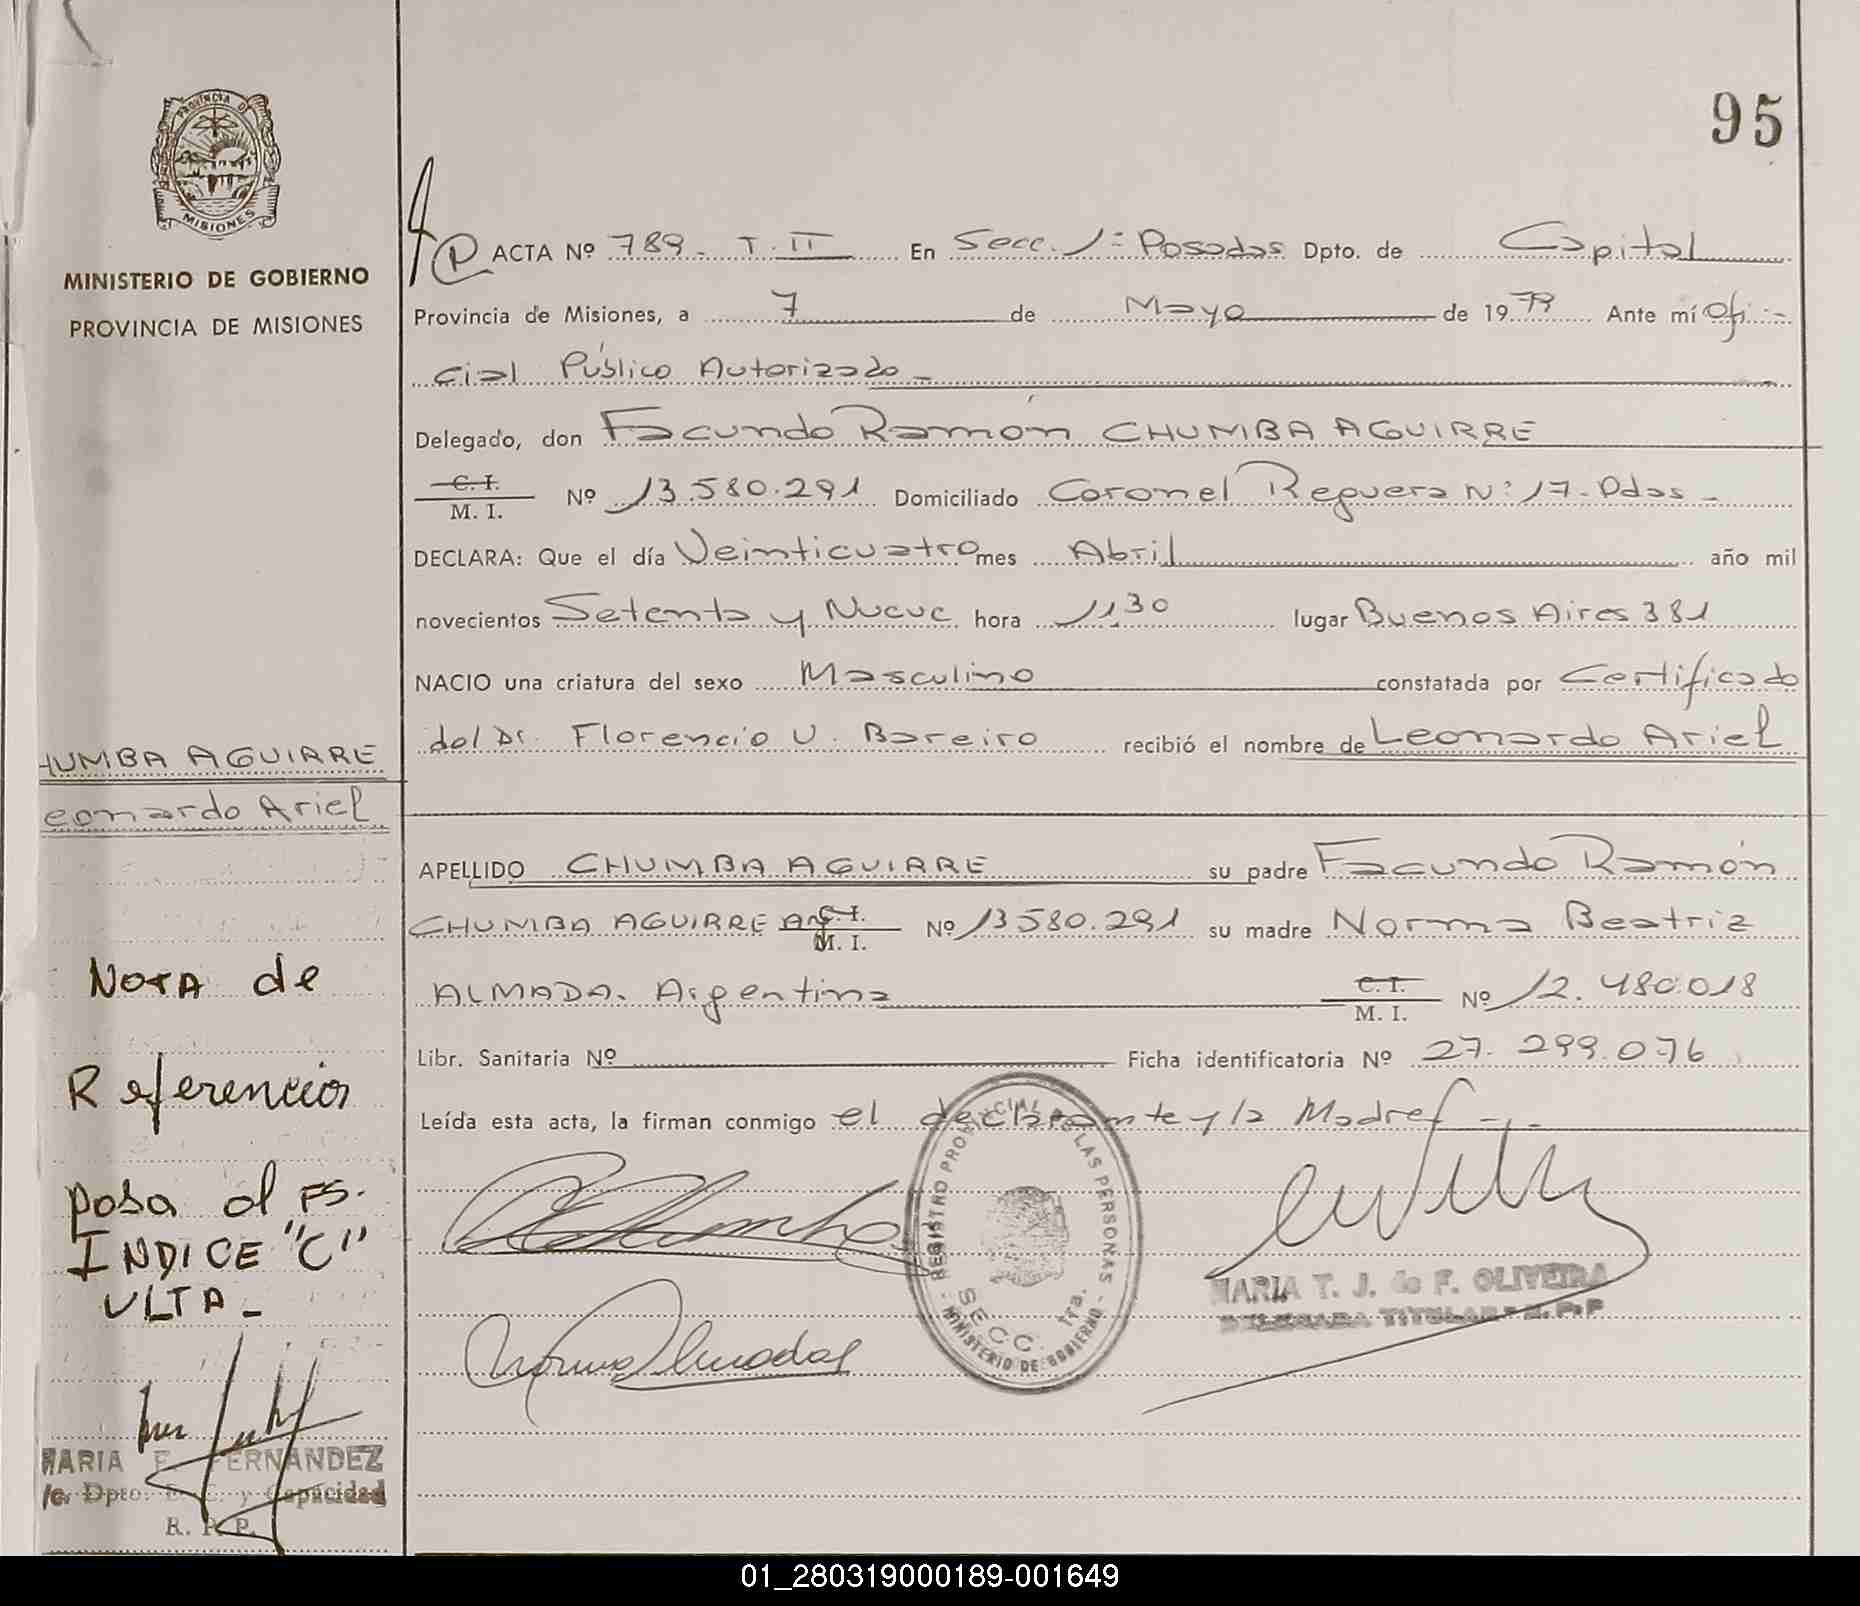 95
PROVINCIA DE
MISIONES
MINISTERIO DE GOBIERNO
PROVINCIA DE MISIONES
P ACTA Nº 789 - T. II En Secc. 1ª Posadas Dpto. de Capital
Provincia de Misiones, a 7 de Mayo de 1979 Ante mí Ofi-
cial Público Autorizado -
Delegado, don Facundo Ramón CHUMBA AGUIRRE
C. I.
M. I. Nº 13.580.291 Domiciliado Coronel Reguera Nº 17 - Pdas -
DECLARA: Que el día Veinticuatro mes Abril año mil
novecientos Setenta y Nueve hora 11,30 lugar Buenos Aires 381
NACIO una criatura del sexo Masculino constatada por Certificado
del Dr. Florencio U. Bareiro recibió el nombre de Leonardo Ariel
HUMBA AGUIRRE
eonardo Ariel
APELLIDO CHUMBA AGUIRRE su padre Facundo Ramón
CHUMBA AGUIRRE Arg C. I.
M. I. Nº 13580.291 su madre Norma Beatriz
ALMADA. Argentina C. I.
M. I. Nº 12.480.018
Libr. Sanitaria Nº Ficha identificatoria Nº 27.299.076
Leída esta acta, la firman conmigo el declarante y la Madre
NOTA de
Referencias
pasa al FS.
INDICE "C"
ULTA -
REGISTRO PROVINCIAL DE LAS PERSONAS
SECC. 1ra.
- MINISTERIO DE GOBIERNO -
MARIA T. J. de F. OLIVEIRA
DELEGADA TITULAR R. P. P
Norma Almada
MARIA E. FERNANDEZ
/c. Dpto. E. C. y Capacidad
R. P. P.
01_280319000189-001649